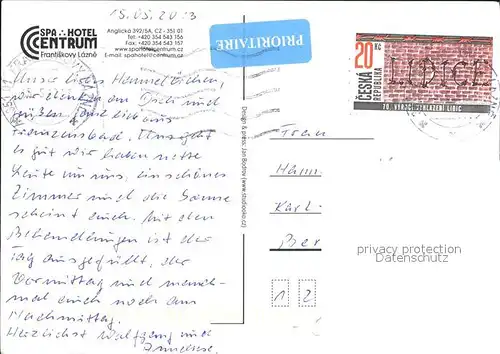 15.05.2013
SPA HOTEL
CENTRUM
Františkovy Lázně
Anglická 392/5A, CZ - 351 01
Tel: +420 354 543 156
Fax: +420 354 543 157
www.spahotelcentrum.cz
E-mail: spahotel@centrum.cz
PRIORITAIRE
ČESKÁ
REPUBLIKA
20 Kč
LIDICE
70. VÝROČÍ VYHLAZENÍ LIDIC
Unser liebes
wir denken an Dich und
grüßen Dich lieb aus
Franzensbad. Uns geht
es gut wir haben nette
Leute um uns, ein schönes
Zimmer und die Sonne
scheint auch. Mit den
Behandlungen ist der
Tag ausgefüllt, der
Vormittag und manch-
mal auch noch am
Nachmittag.
Herzlichst Wolfgang und
Design & press: Jan Bodrov (www.studiobko.cz)
Frau
Hann
Karl-
Ber
privacy protection
Datenschutz
1 2